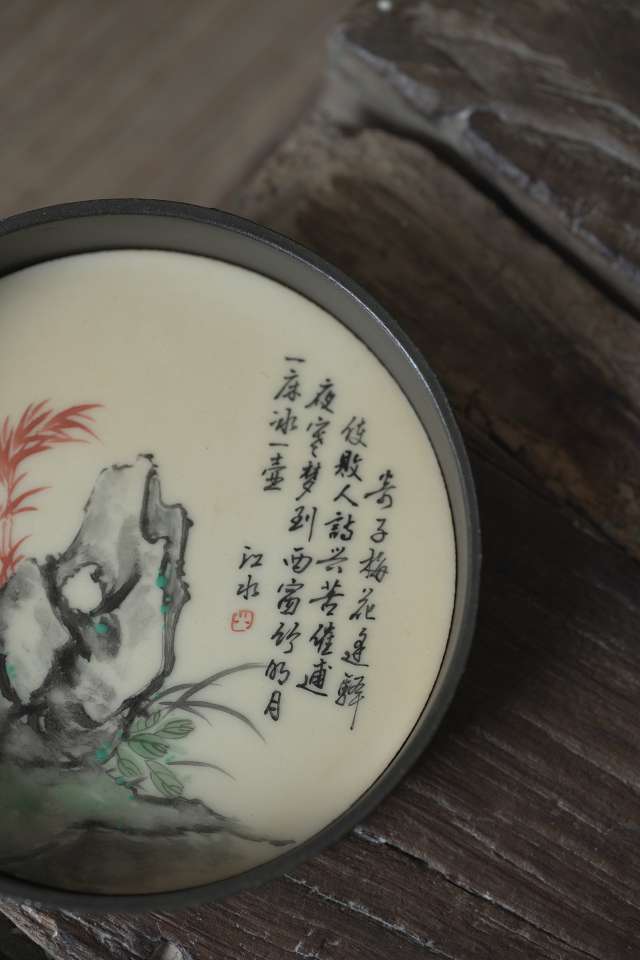 寄子梅花逢驛
使敗人詩兴苦催逋
夜寒梦到西窗竹明月
一床冰一壶
江水